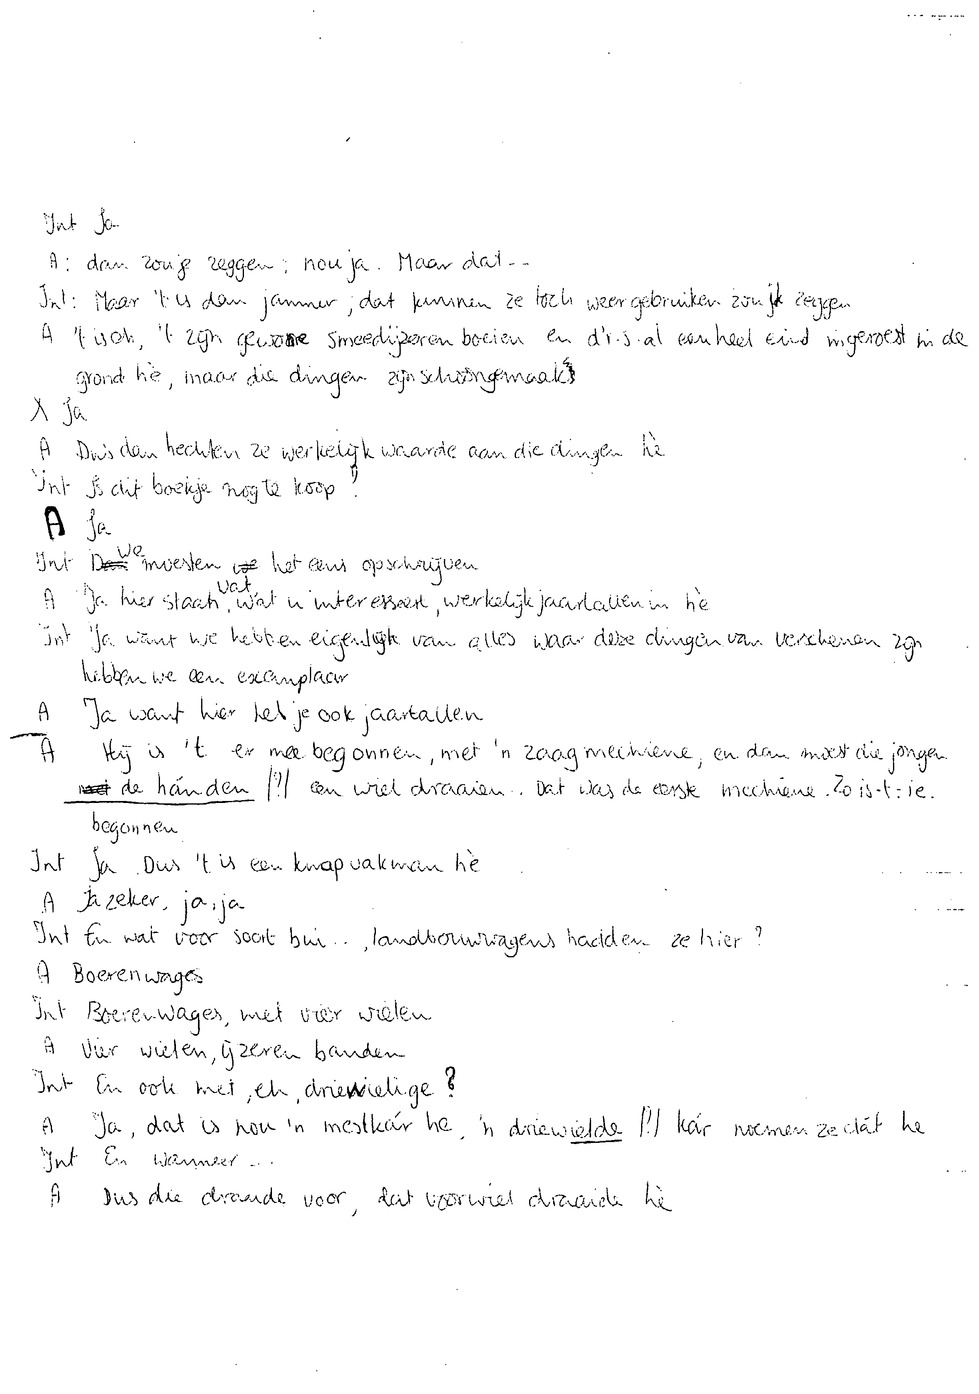 Int Ja
A: dan zou je zeggen; nou ja. Maar dat--
Int: Maar 't is dan jammer, dat kunnen ze toch weer gebruiken zou je zeggen
A 't is oh, 't zijn gewone smeedijzeren boeien en d'r.s.al een heel eind ingeroest in de
grond hè, maar die dingen zijn schoongemaakt
X Ja
A Dus dan hechten ze werkelijk waarde aan die dingen hè
Int Is dit boekje nog te koop?
A Ja
Int We moesten het eens opschrijven
A Ja hier staan, wat wat u interesseert, werkelijk jaartallen in hè
Int Ja want we hebben eigenlijk van alles waar deze dingen van verschenen zijn
hebben we een exemplaar
A Ja want hier heb je ook jaartallen
A Hij is 't er mee begonnen, met 'n zaagmechiene, en dan moest die jongen
met de hánden |?| een wiel draaien.. Dat was de eerste mechiene. Zo is-t:ie.
begonnen
Int Ja. Dus 't is een knap vakman hè
A Ja zeker, ja, ja
Int En wat voor soort bui.., landbouwwagens hadden ze hier?
A Boerenwages
Int Boerenwages, met vier wielen
A Vier wielen, ijzeren banden
Int En ook met, eh, driewielige?
A Ja, dat is nou 'n mestkár he, 'n driewielde |?| kár noemen ze dát he
Int En wanneer...
A Dus die draaide voor, dat voorwiel draaide hè